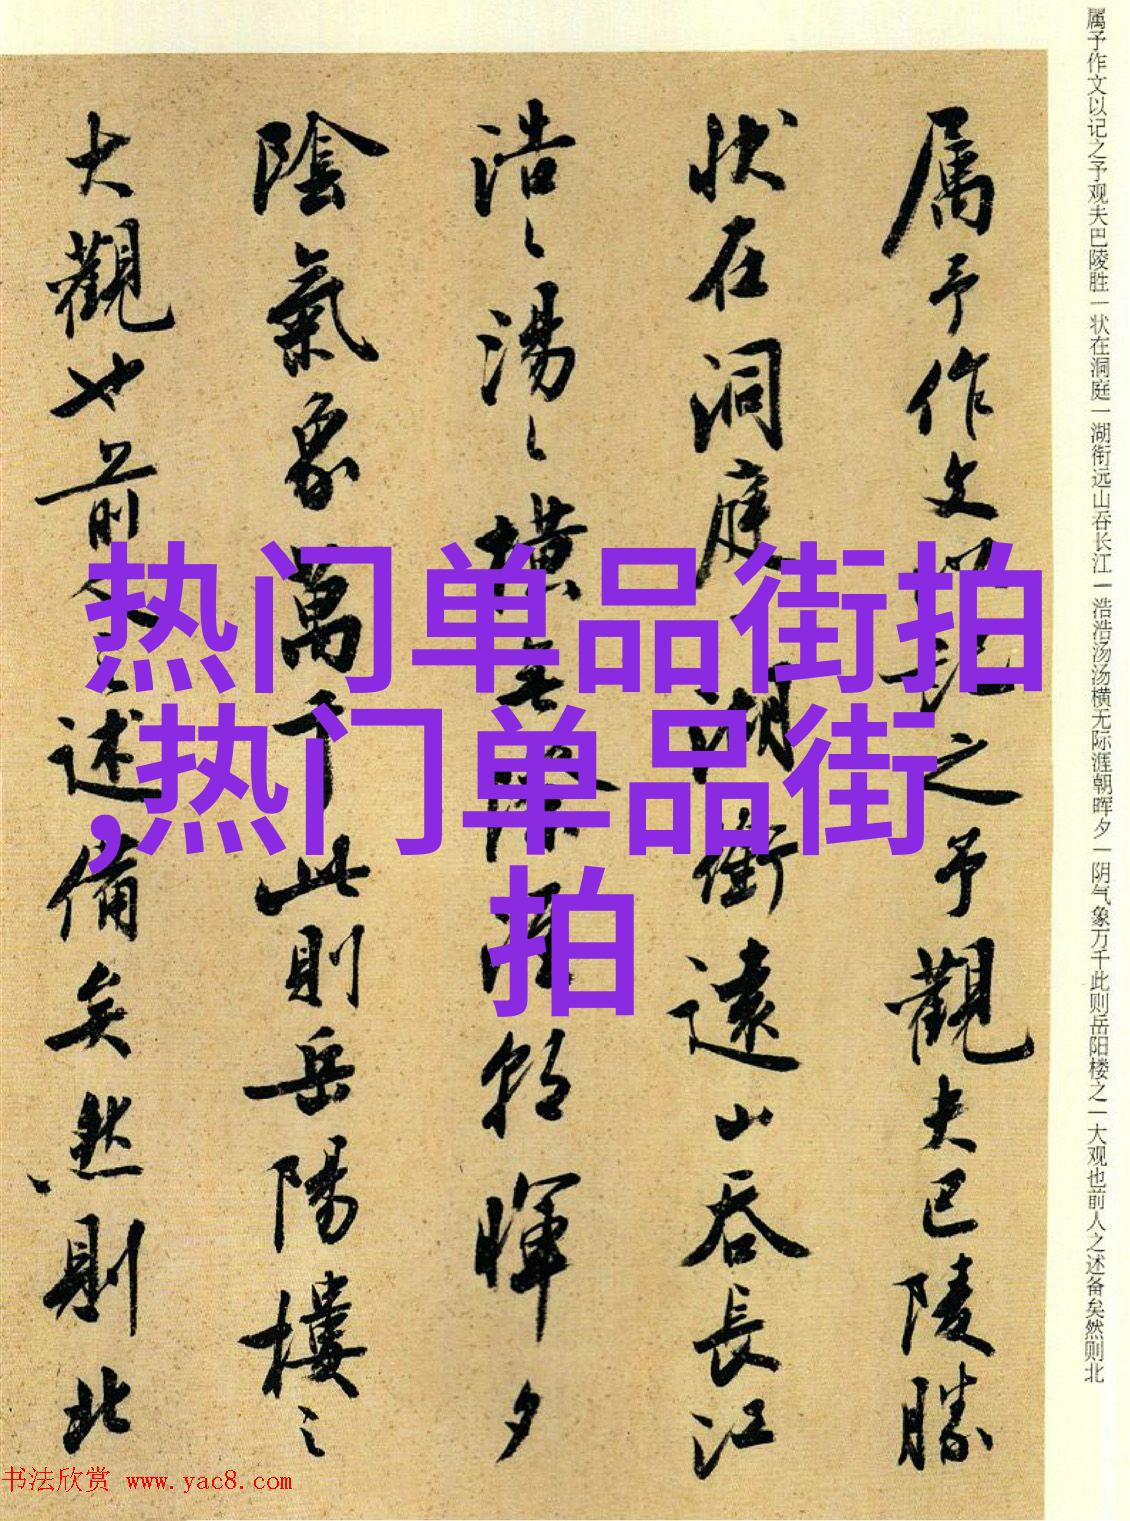 属予作文以记之予观夫巴陵胜一状在洞庭一湖衔远山吞长江一浩浩汤汤横无际涯朝晖夕一阴气象万千此则岳阳楼之一大观也前人之述备矣然则北
属予作文以记之予觀夫巴陵勝
状在洞庭一湖銜遠山吞長江
浩〻湯〻橫無際涯朝暉夕
陰氣象萬千此則岳陽樓之
大觀也前人之述備矣然則北
热门单品街拍
,热门单品街
拍
书法欣赏 www.yac8.com